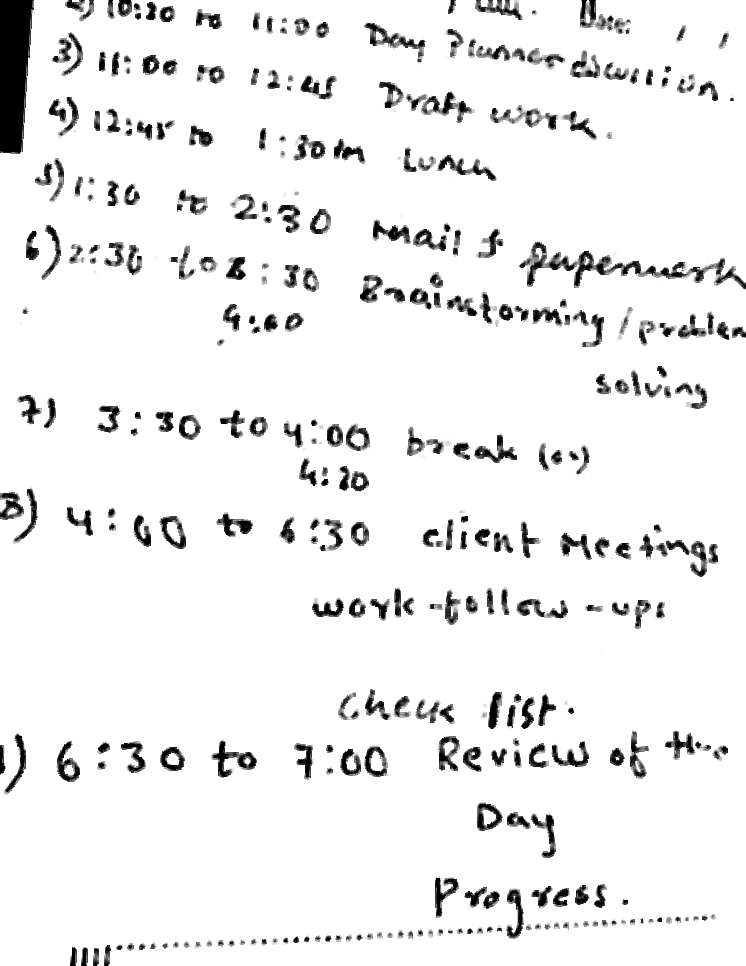 Date: / /
2) 10:30 to 11:00 Day Planner discussion.
3) 11:00 to 12:45 Draft work.
4) 12:45 to 1:30 pm Lunch
5) 1:30 to 2:30 mail & paperwork
6) 2:30 to 3:30 Brainstorming / problem
4:00
solving
7) 3:30 to 4:00 break (or)
4:20
8) 4:00 to 6:30 client Meetings
work-follow-ups
Check list.
) 6:30 to 7:00 Review of the
Day
Progress.